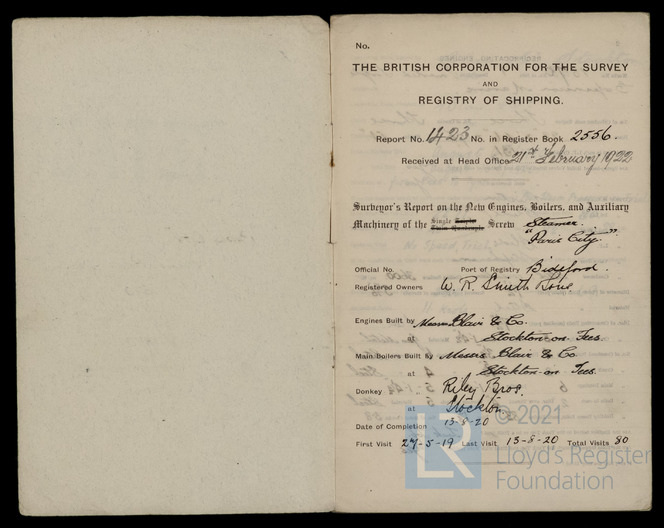 No.
THE BRITISH CORPORATION FOR THE SURVEY
AND
REGISTRY OF SHIPPING.
Report No. 1423 No. in Register Book 2556.
Received at Head Office 21st February 1922
Surveyor's Report on the New Engines, Boilers, and Auxiliary
Machinery of the Single Triple Twin Quadruple Screw Steamer
"Paris City."
Official No. Port of Registry Bideford.
Registered Owners W. R. Smith Sons
Engines Built by Messrs Blair & Co.
at Stockton-on-Tees.
Main Boilers Built by Messrs Blair & Co.
at Stockton-on-Tees.
Donkey Riley Bros.
at Stockton
Date of Completion 13-8-20
First Visit 27-5-19 Last Visit 13-8-20 Total Visits 80
LR
© 2021
Lloyd's Register
Foundation